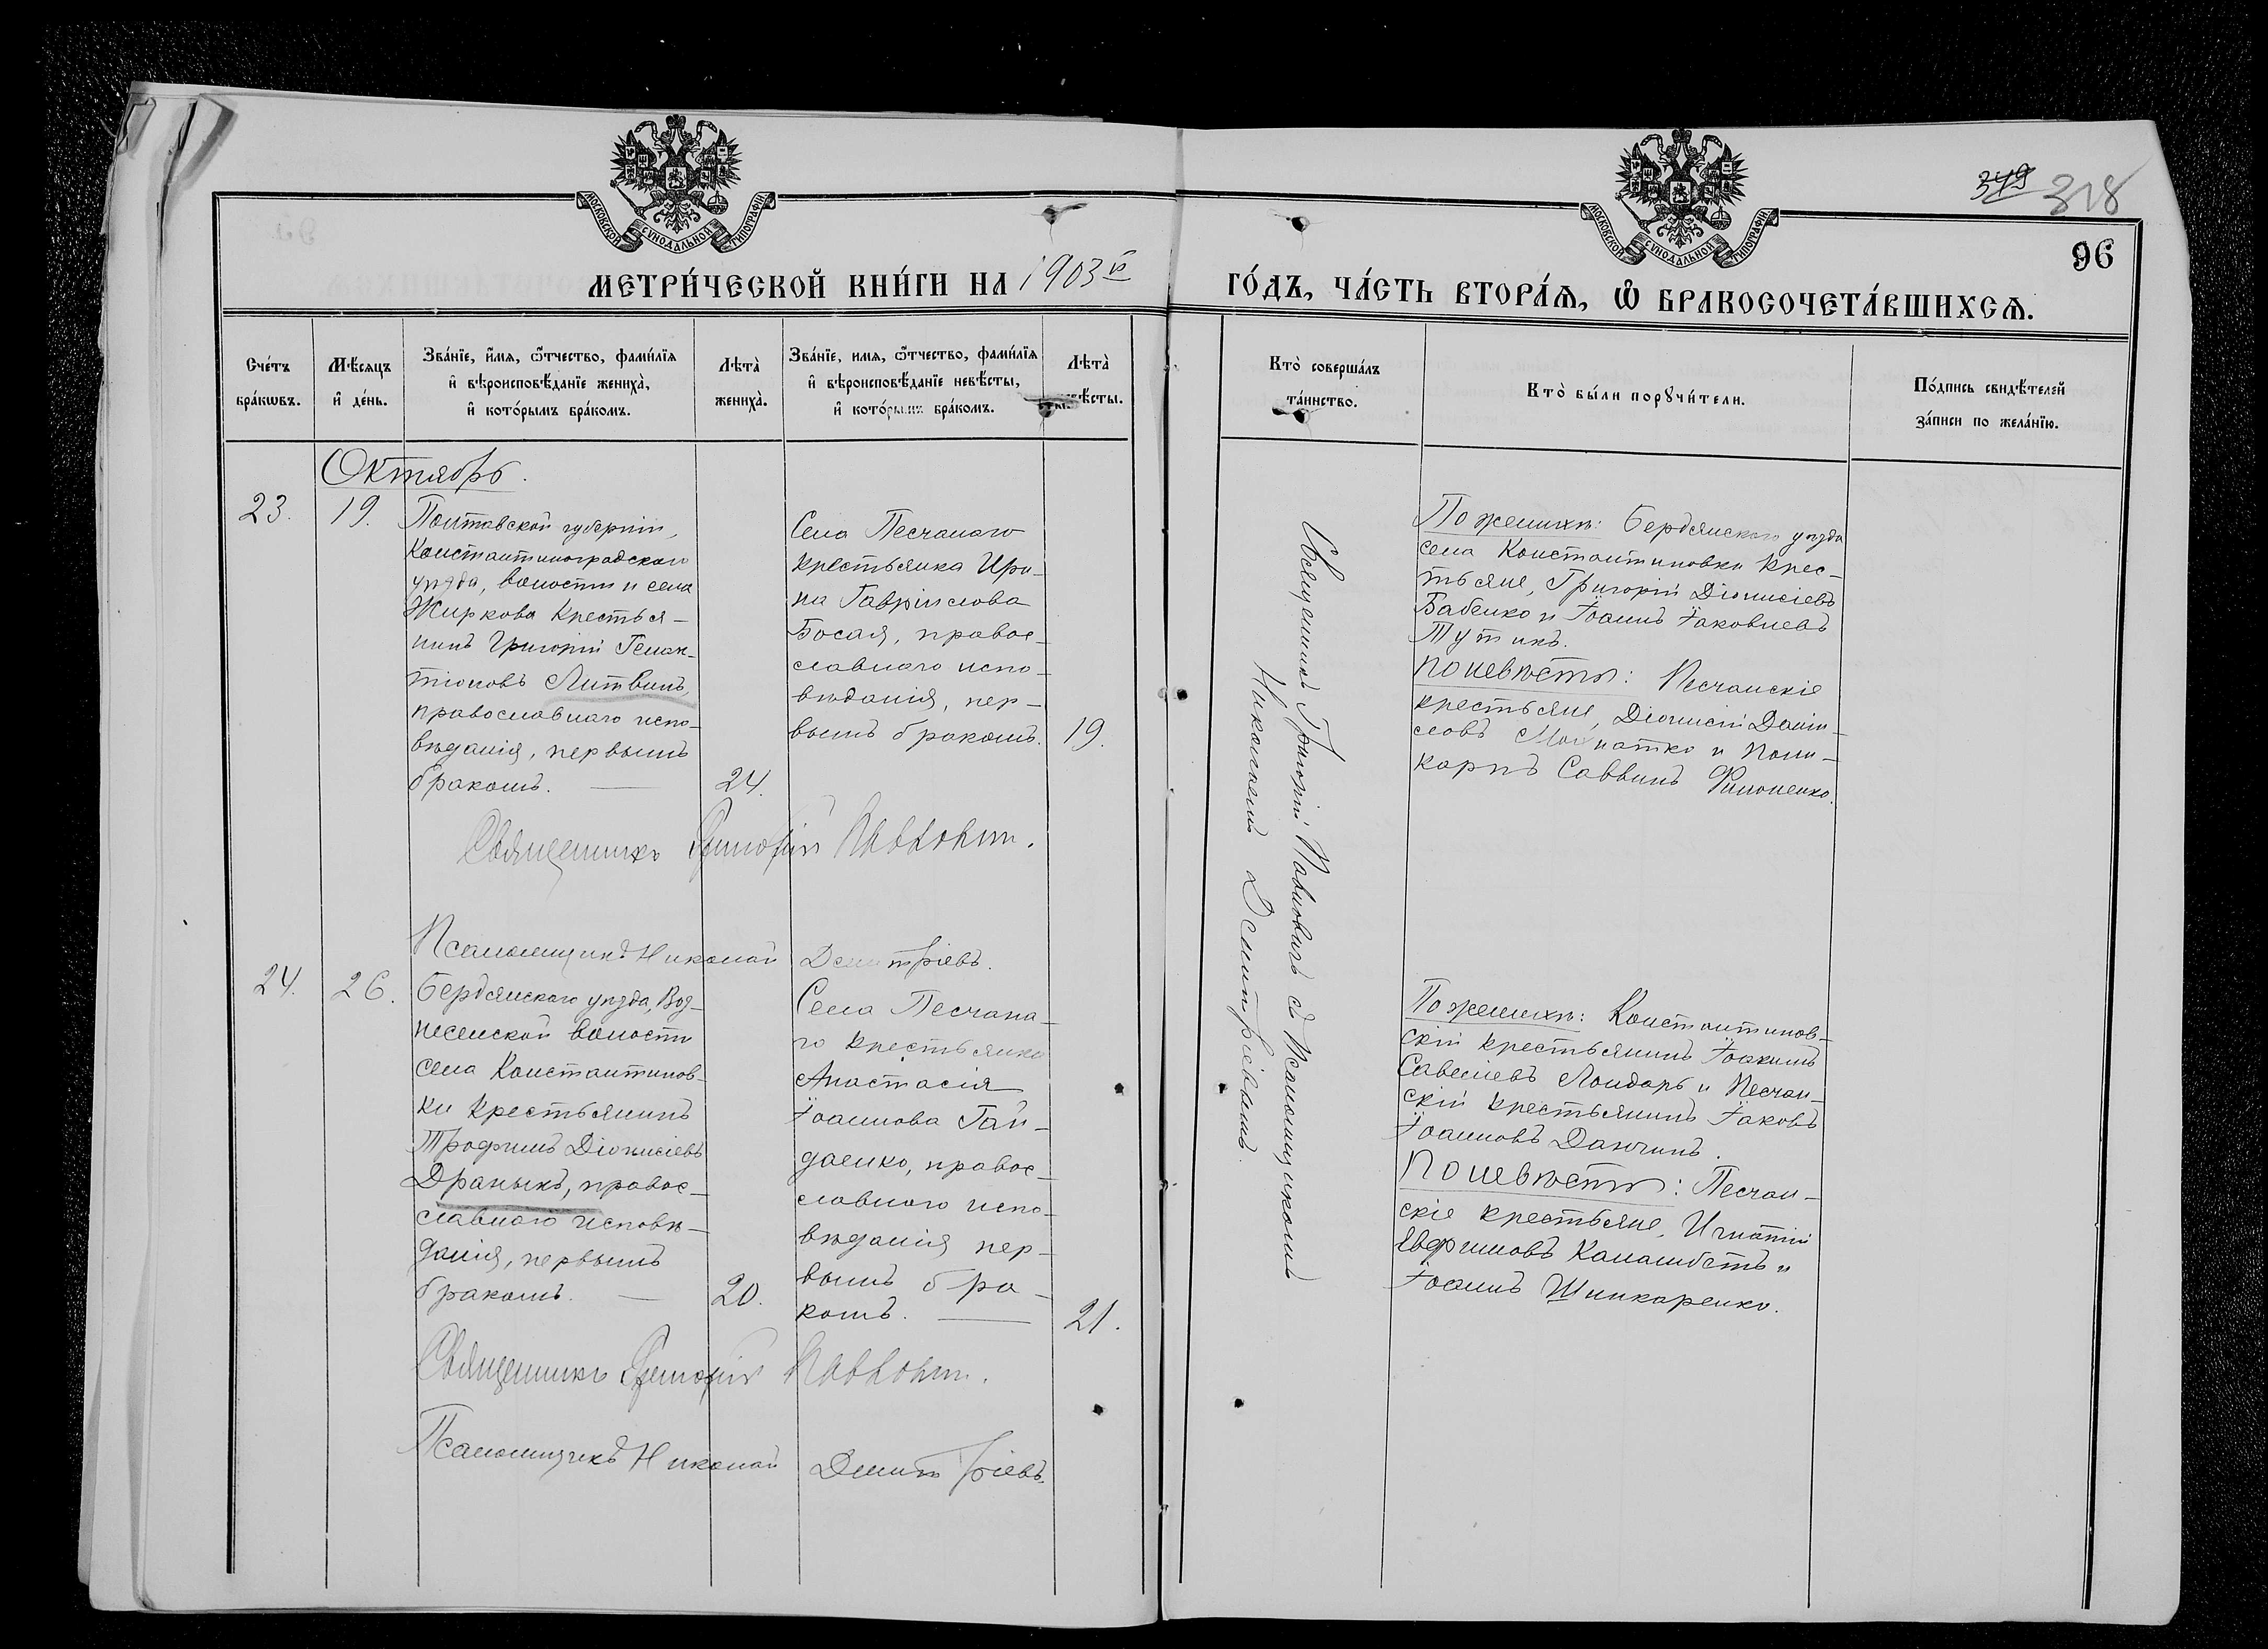 МОСКОВСКОЙ СѴНОДАЛЬНОЙ ТИПОГРАФІИ
МОСКОВСКОЙ СѴНОДАЛЬНОЙ ТИПОГРАФІИ
349 318
96
МЕТРИ́ЧЕСКОЙ КНИ́ГИ НА 1903й ГО́ДЪ, ЧА́СТЬ ВТОРА́Ѧ, Ѽ БРАКОСОЧЕТА́ВШИХСѦ.
Сче́тъ бра́кѡвъ.
Мѣ́сяцъ и҆ де́нь.
Зва́нїе, и҆́мѧ, ѻ҆́тчество, фами́лїѧ и҆ вѣроисповѣ́данїе жениха̀, и҆ кото́рымъ бра́комъ.
Лѣ̀та жениха̀.
Зва́нїе, имѧ, ѻ҆́тчество, фами́лїѧ и҆ вѣроисповѣ́данїе невѣ́сты, и҆ кото́рымъ бра́комъ.
Лѣ̀та невѣ́сты.
Кто̀ соверша́лъ та́инство.
Кто̀ бы́ли порꙋчи́тели.
По́дпись свидѣ́телей за́писи по жела́нїю.
Октябрь.
23.
19.
Полтавской губерніи,
Константиноградскаго
уѣзда, волости и села
Жиркова крестья-
нинъ Григорій Гелак-
тіоновъ Литвинъ,
православнаго испо-
вѣданія, первымъ
бракомъ.
24.
Села Песчанаго
крестьянка Ири-
на Гавріилова
Босая, правос-
лавнаго испо-
вѣданія, пер-
вымъ бракомъ.
19.
Священникъ Григорій Павловичъ съ Псаломщикомъ
Николаемъ Димитріевымъ.
По женихѣ: Бердянскаго уѣзда
села Константиновки крес-
тьяне, Григорій Діонисіевъ
Бабенко и Іоаннъ Іаковлевъ
Тутикъ.
По невѣстѣ: Песчанскіе
крестьяне, Діонисій Даніи-
ловъ и Поли-
карпъ Саввинъ Филоненко.
Священникъ Григорій Павловичъ.
Псаломщикъ Николай Димитріевъ.
24.
26.
Бердянскаго уѣзда, Воз-
несенской волости
села Константинов-
ки крестьянинъ
Трофимъ Діонисіевъ
Драныкъ, правос-
лавнаго исповѣ-
данія, первымъ
бракомъ.
20.
Села Песчана-
го крестьянка
Анастасія
Іоаннова Гай-
даенко, правос-
лавнаго испо-
вѣданія пер-
вымъ бра-
комъ.
21.
По женихѣ: Константинов-
скій крестьянинъ Іоакимъ
Савеліевъ Лондарь и Песчан-
скій крестьянинъ Іаковъ
Іоанновъ
По невѣстѣ: Песчан-
скіе крестьяне, Игнатій
Евфимовъ и
Іоаннъ Шинкаренко.
Священникъ Григорій Павловичъ.
Псаломщикъ Николай Димитріевъ.